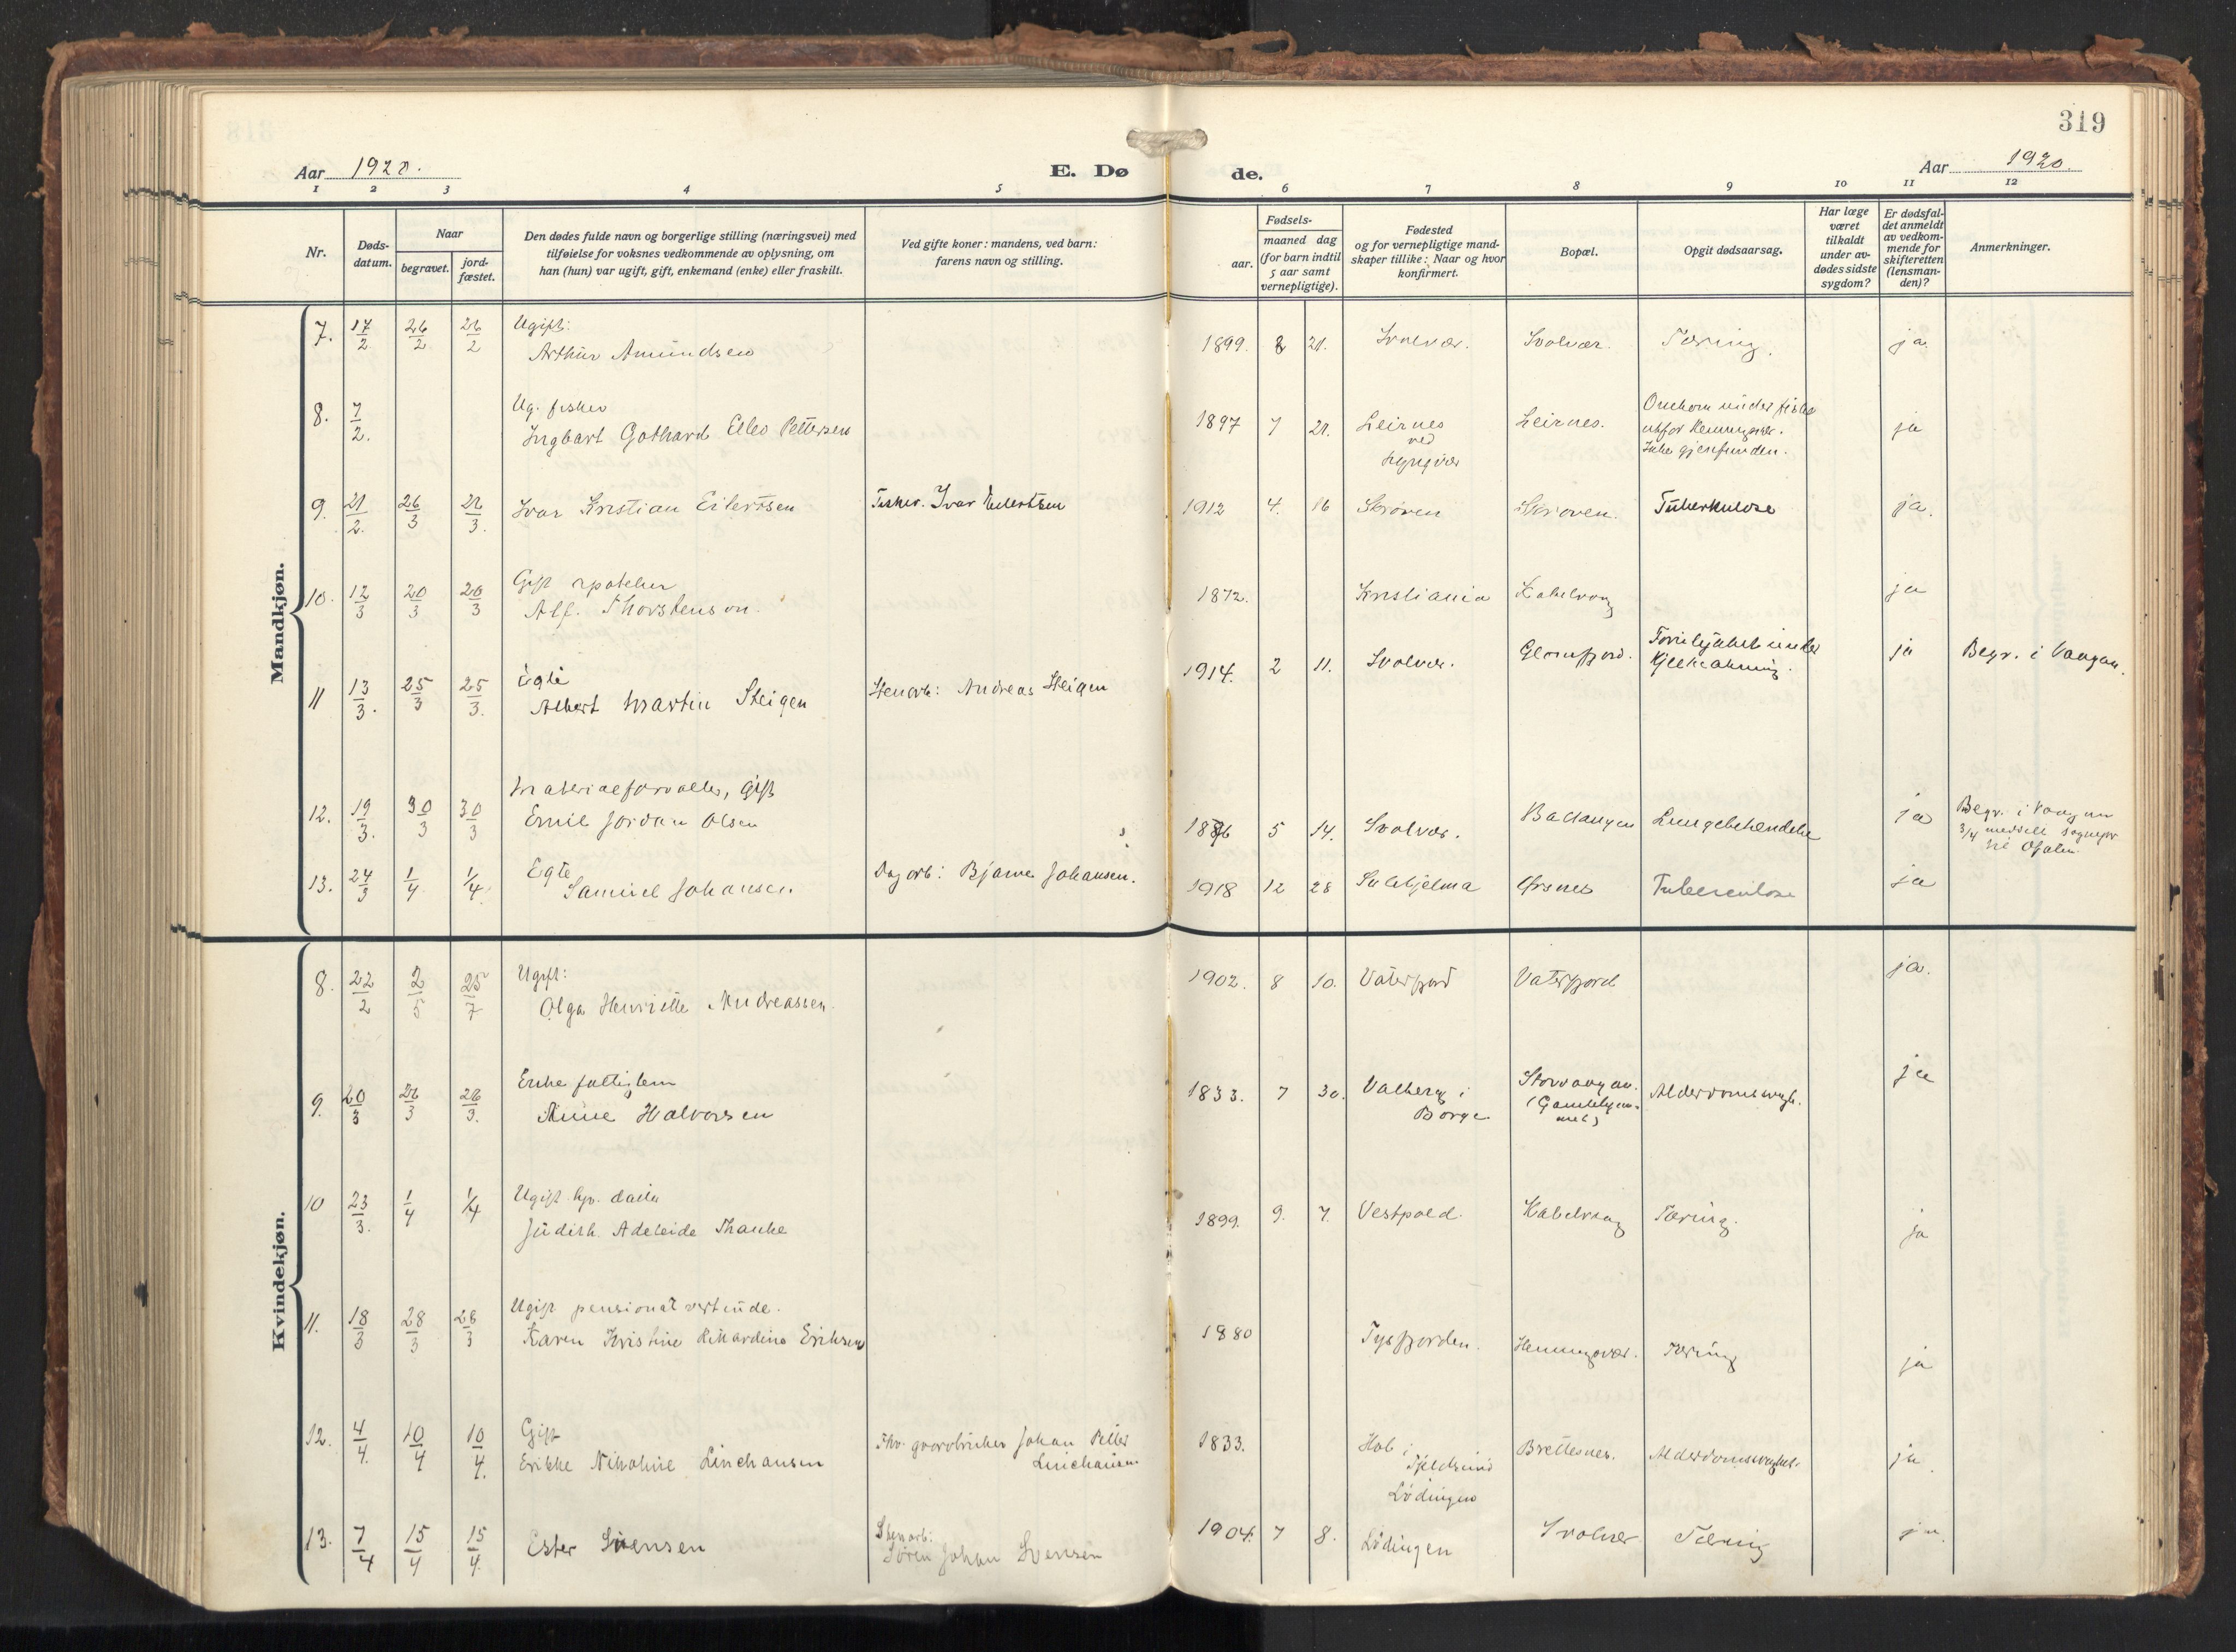 319
Aar 1920.
E. Dø
de.
Aar 1920.
1 2 3 4 5 6 7 8 9 10 11 12
Nr.
Døds-
datum.
Naar
begravet.
jord-
fæstet.
Den dødes fulde navn og borgerlige stilling (næringsvei) med
tilføielse for voksnes vedkommende av oplysning, om
han (hun) var ugift, gift, enkemand (enke) eller fraskilt.
Ved gifte koner: mandens, ved barn:
farens navn og stilling.
Fødsels-
aar.
maaned dag
(for barn indtil
5 aar samt
vernepligtige).
Fødested
og for vernepligtige mand-
skaper tillike: Naar og hvor
konfirmert.
Bopæl.
Opgit dødsaarsag.
Har læge
været
tilkaldt
under av-
dødes sidste
sygdom?
Er dødsfal-
det anmeldt
av vedkom-
mende for
skifteretten
(lensman-
den)?
Anmerkninger.
Mandkjøn.
7. 17/2 26/2 26/2 Ugift:
Arthur Amundsen
1899. 2 21. Svolvær. Svolvær. Tæring. ja.
8. 7/2. Ug. fisker
Ingbart Gothard Elles Pettersen
1897 7 21. Leirnes
ved
Leirnes.
Omkom under fiske
utfor Henningsvær.
Ikke gjenfunden.
ja
9. 21/2. 26/3 26/3. Ivar Kristian Eilertsen
Fisker. Ivar Eilertsen
1912 4. 16 Skroven Skroven. Tuberkulose ja.
10. 12/3 20/3 20/3 Gift apoteker
Alf. Thorstenson.
1872. Kristiania Kabelvaag ja
11 13/3. 25/3 25/3. Egte
Albert Martin Steigen
Stenarb: Andreas Steigen
1914. 2 11. Svolvær. Glomfjord.
ja Begr. i Vaagan.
12. 19/3. 30/3 30/3 Materialforvalter, Gift
Emil Jordan Olsen
1886 5 14. Svolvær. Ballangen Lungebetændelse ja
Begr. i Vaagan
3/4 meddelt sognepr
til Ofoten.
13. 24/3 1/4. 1/4. Egte
Samuel Johansen
Dagarb: Bjarne Johansen.
1918 12 28 Sulitjelma Ørsnes Tuberculose ja
Kvindekjøn.
8. 22/2 2/5 25/7 Ugift:
Olga Henriette Andreassen.
1902. 8 10. Vaterfjord Vaterfjord ja.
9. 20/3 26/3 26/3. Enke fattiglem
Anne Halvorsen
1833. 7 30. Valberg i
Borge
Storvaagan.
(Gamlehjem-
met)
Alderdomssvagh.
ja
10 23/3. 1/4 1/4 Ugift hp. datter
Judith Adeleide Thanke
1899. 9. 7. Vestpold. Kabelvaag Tæring. ja
11. 18/3 28/3 28/3 Ugift pensionatvertinde.
Karen Kristine Rikardine Eriksen
1880 Tysfjorden. Henningsvær. Tæring ja
12. 4/4. 10/4 10/4. Gift
Erikke Nikoline Linchausen
Fhv. gaardbruker Johan Petter
Linchausen.
1833. Hol i
Tjeldsund
Lødingen
Brettesnes. Alderdomssvaghet. ja.
13. 7/4 15/4 15/4. Ester Svensen
Stenarb:
Søren Johan Svensen
1904. 7 8. Lødingen Svolvær Tæring ja.